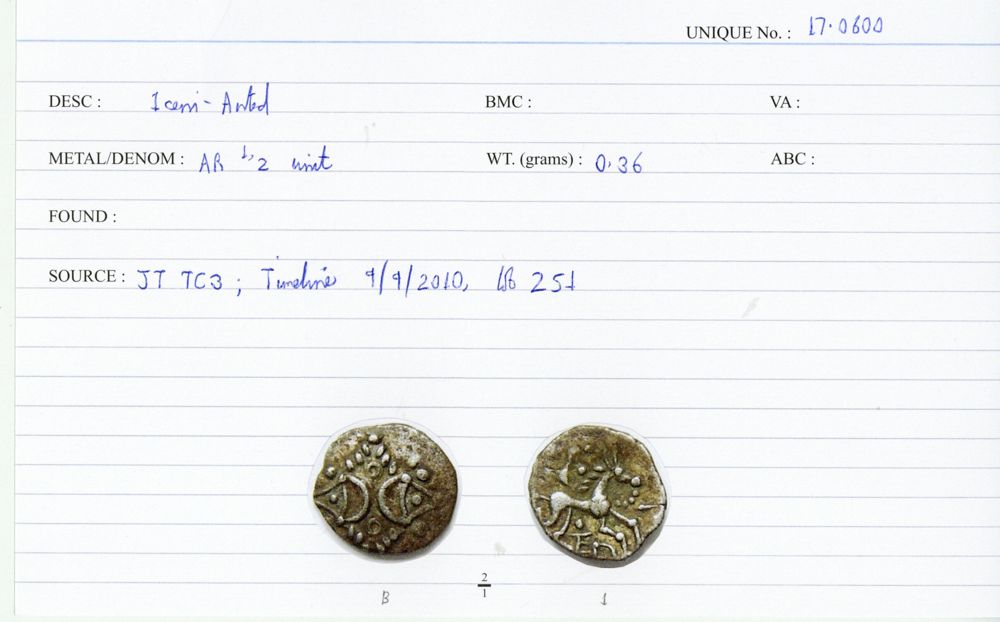 UNIQUE No. : 17·0600
DESC : Iceni - Anted BMC : VA :
METAL/DENOM : AR 1/2 unit WT. (grams) : 0.36 ABC :
FOUND :
SOURCE : JT TC3 ; Timeline 9/9/2010, 251
ED
2/1
B 1